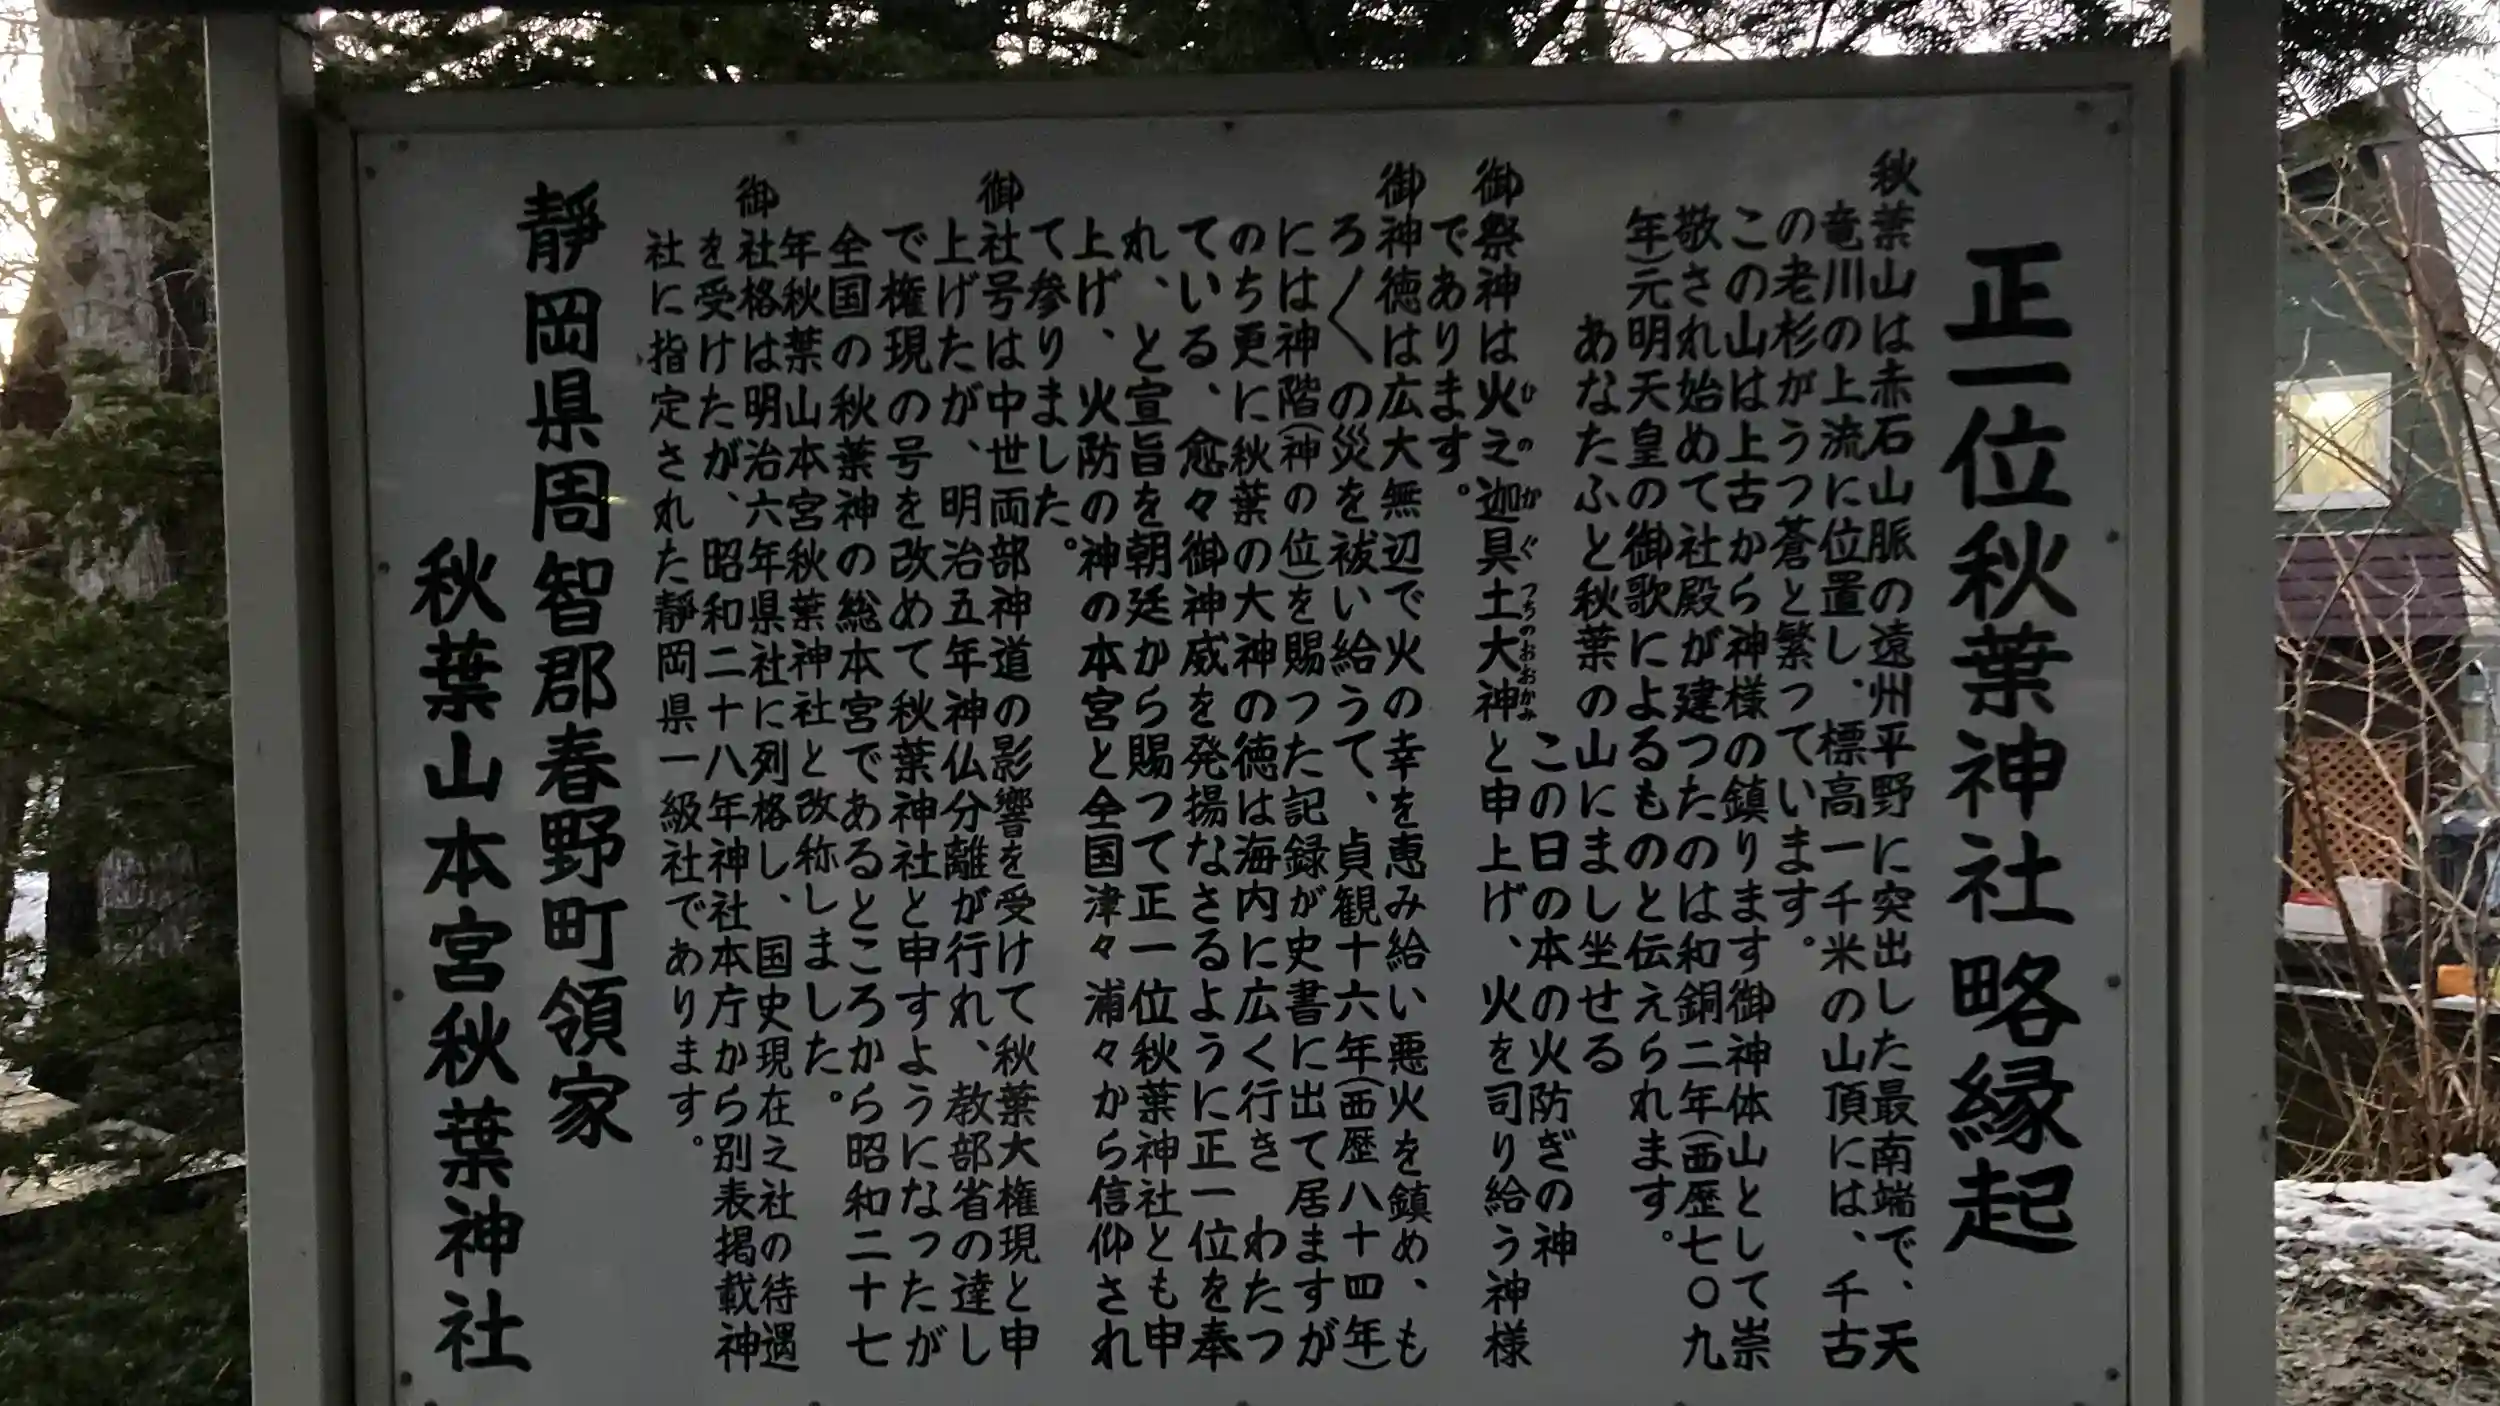 正一位秋葉神社略縁起
秋葉山は赤石山脈の遠州平野に突出した最南端で、天
竜川の上流に位置し、標高一千米の山頂には、千古
の老杉がうつ蒼と繁っています。
この山は上古から神様の鎮ります御神体山として崇
敬され始めて社殿が建つたのは和銅二年(西歴七〇九
年)元明天皇の御歌によるものと伝えられます。
あなたふと秋葉の山にまし坐せる
この日の本の火防ぎの神
御祭神は火之迦具土大神と申上げ、火を司り給う神様
ひのかぐつちのおおかみ
であります。
御神徳は広大無辺で火の幸を恵み給い悪火を鎮め、も
ろ〱の災を祓い給うて、貞観十六年(西歴八十四年)
には神階(神の位)を賜った記録が史書に出て居ますが
のち更に秋葉の大神の徳は海内に広く行き わたつ
ている、愈々御神威を発揚なさるように正一位を奉
れ、と宣旨を朝廷から賜つて正一位秋葉神社とも申
上げ、火防の神の本宮と全国津々浦々から信仰され
て参りました。
御社号は中世両部神道の影響を受けて秋葉大権現と申
上げたが、明治五年神仏分離が行れ、教部省の達し
で権現の号を改めて秋葉神社と申すようになったが
全国の秋葉神の総本宮であるところから昭和二十七
年秋葉山本宮秋葉神社と改称しました。
御社格は明治六年県社に列格し、国史現在之社の待遇
を受けたが、昭和二十八年神社本庁から別表掲載神
社に指定された静岡県一級社であります。
静岡県周智郡春野町領家
秋葉山本宮秋葉神社